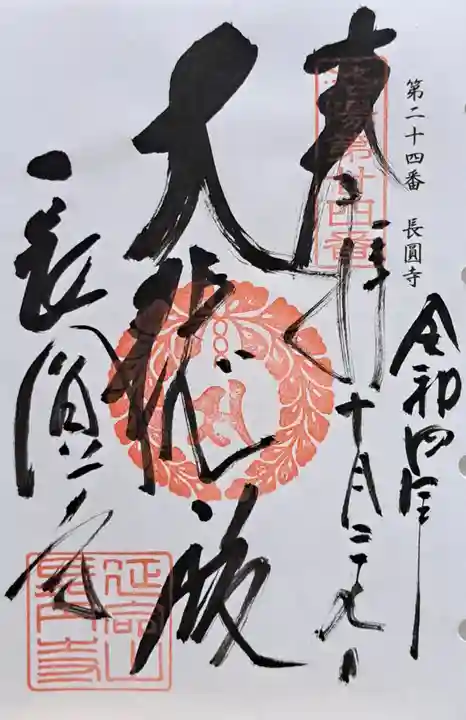 第二十四番 長圓寺
令和四年
十月二十九日
奉拝
霊場第廿四番
大悲殿
長圓寺
長円寺